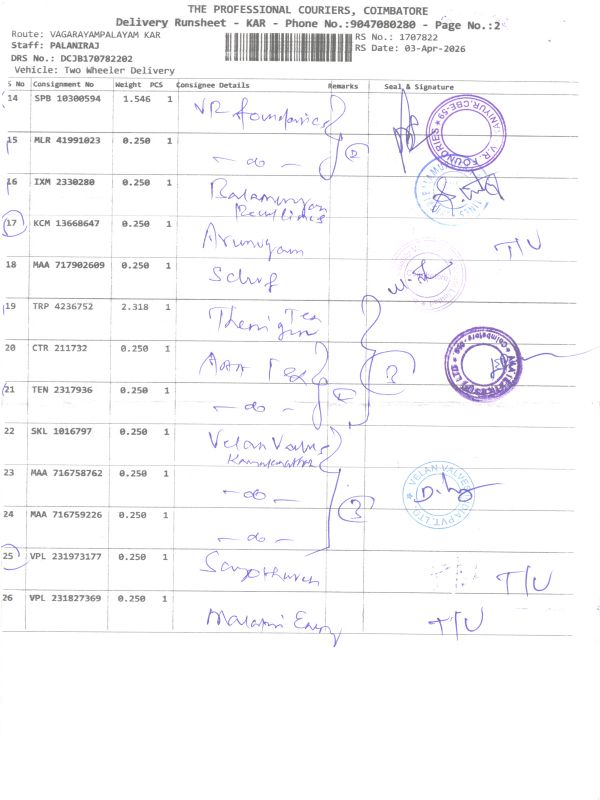 THE PROFESSIONAL COURIERS, COIMBATORE
Delivery Runsheet - KAR - Phone No.:9047080280 - Page No.:2
Route: VAGARAYAMPALAYAM KAR
RS No.: 1707822
Staff: PALANIRAJ
RS Date: 03-Apr-2026
DRS No.: DCJB170782202
Vehicle: Two Wheeler Delivery
S No Consignment No Weight PCS Consignee Details Remarks Seal & Signature
14 SPB 10300594 1.546 1 VR foundories
15 MLR 41991023 0.250 1 - do -
16 IXM 2330280 0.250 1
17 KCM 13668647 0.250 1 Arumugam T/U
18 MAA 717902609 0.250 1
19 TRP 4236752 2.318 1
20 CTR 211732 0.250 1
21 TEN 2317936 0.250 1 - do -
22 SKL 1016797 0.250 1 Velan Valves
23 MAA 716758762 0.250 1 - do - 3
VELAN VALVES
PVT. LTD.
24 MAA 716759226 0.250 1 - do -
25 VPL 231973177 0.250 1 T/U
26 VPL 231827369 0.250 1 T/U